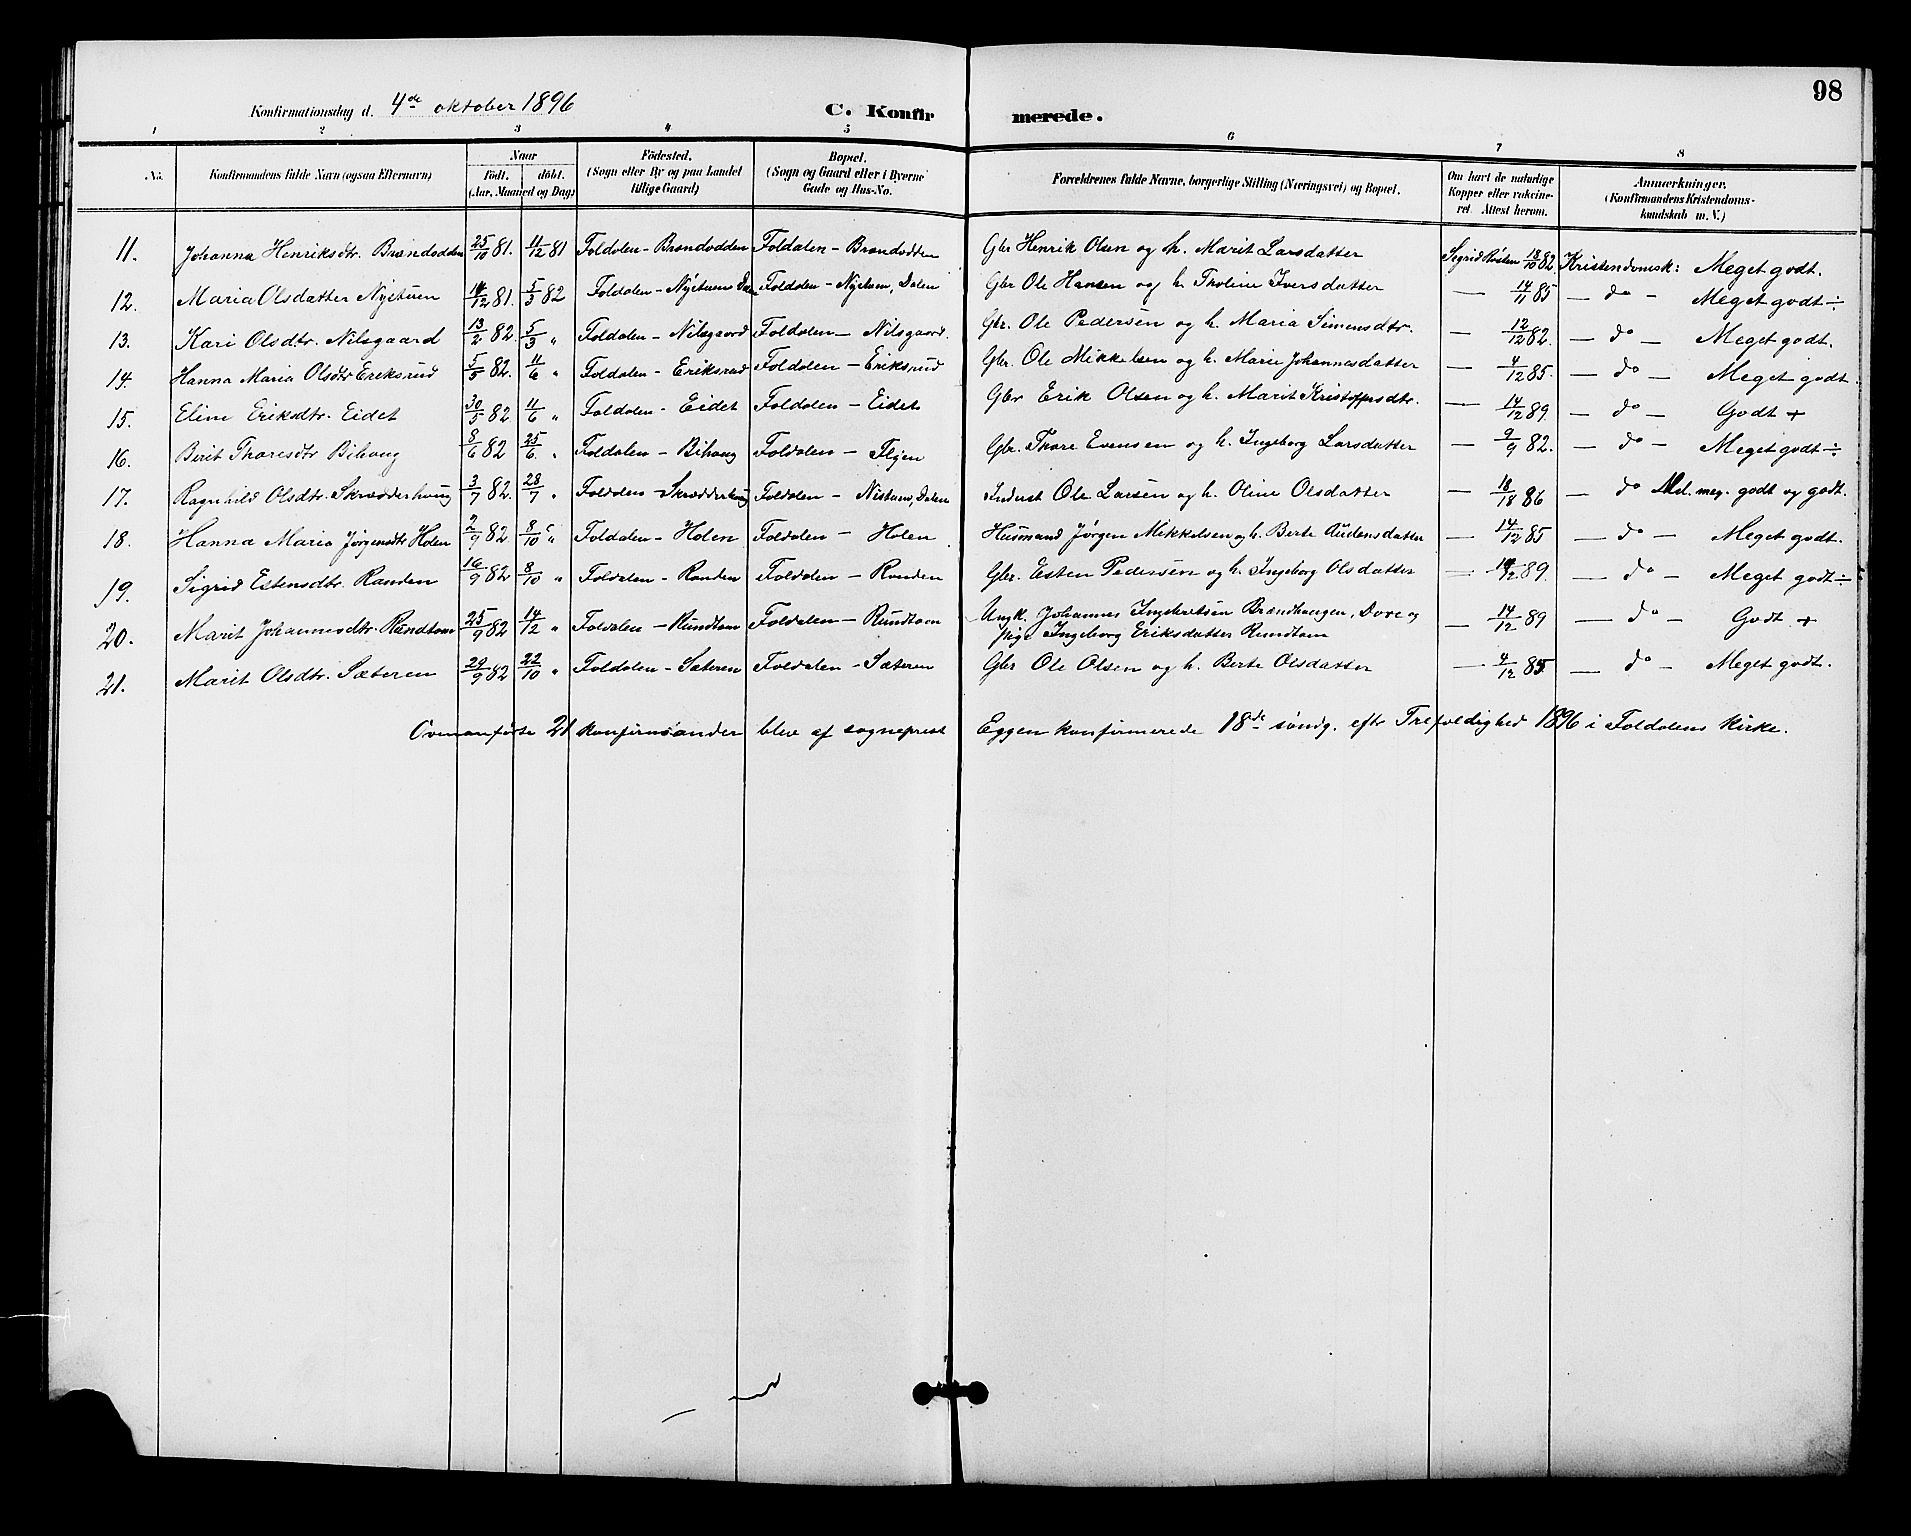 98
Konfirmationsdag d. 4de oktober 1896 C. Konfirmerede.
1 2 3 4 5 6 7 8
No. Konfirmandens fulde Navn (ogsaa Efternavn) Naar Født. døbt. (Aar, Maaned og Dag) Födested. (Sogn eller By og paa Landet tillige Gaard) Bopæl. (Sogn og Gaard eller i Byerne Gade og Hus-No. Forældrenes fulde Navne, borgerlige Stilling (Næringsvei) og Bopæl. Om havt de naturlige Kopper eller vakcineret. Attest herom. Anmærkninger. (Konfirmandens Kristendomskundskab m. V.)
11. Johanna Henriksdtr. Brændodden 25/10 81. 11/12 81 Foldalen - Brændodden Foldalen - Brændodden Gbr Henrik Olsen og h. Marit Larsdatter Sigrid 18/10 82 Kristendomsk: Meget godt.
12. Maria Olsdatter Nyetuen 14/12 81. 5/3 82 Foldalen - Nyetuen Dalen Foldalen - Nyetuen, Dalen Gbr Ole Hansen og h. Tholine Iversdatter — 14/11 85 — do - Meget godt ÷
13. Kari Olsdtr. Nilsgaard 13/2 82. 5/3 " Foldalen - Nilsgaard Foldalen - Nilsgaard. Gbr. Ole Pedersen og h. Maria Simensdtr. — 12/12 82. — do — Meget godt.
14. Hanna Maria Olsdtr Eriksrud 5/5 82. 11/6 " Foldalen - Eriksrud Foldalen - Eriksrud Gbr. Ole Mikkelsen og h. Marie Johannesdatter — 4/12 85. — do — Meget godt.
15. Eline Eriksdtr. Eidet 30/5 82 11/6 " Foldalen - Eidet Foldalen - Eidet Gbr Erik Olsen og h. Marit Kristoffersdtr. — 14/12 89. — do — Godt +
16. Berit Thoresdtr Bihaug 8/6 82 25/6 " Foldalen - Bihaug Foldalen - Gbr. Thore Evensen og h. Ingeborg Larsdatter — 9/9 82. — do — Meget godt ÷
17. Ragnhild Olsdtr. Skrædderhaug 3/7 82. 23/7 " Foldalen - Skrædderhaug Foldalen - Nistuen, Dalen Inderst Ole Larsen og h. Oline Olsdatter — 86 — do Mel. meg. godt og godt.
18. Hanna Maria Jørgensdtr Holen 2/9 82 8/10 " Foldalen - Holen Foldalen - Holen Husmand Jørgen Mikkelsen og h. Berte Audensdatter — 14/12 85 — do — Meget godt.
19. Sigrid Estensdtr. Randen 16/9 82 8/10 " Foldalen - Randen Foldalen - Randen Gbr. Esten Pedersen og h. Ingeborg Olsdatter — 14/12 89. — do — Meget godt ÷
20. Marit Johannesdtr. Rundtom 25/9 82 14/12 " Foldalen - Rundtom Foldalen - Rundtom Ungk. Johannes Ingebretsen Brændhaugen, Dovre og
pige Ingeborg Eriksdatter Rundtom — 14/12 89 — do — Godt +
21. Marit Olsdtr. Sæteren 29/9 82 22/10 " Foldalen - Sæteren Foldalen - Sæteren Gbr Ole Olsen og h. Berte Olsdatter — 4/12 85 — do - Meget godt.
Ovenanførte 21 konfirmander blev af sogneprest Eggen konfirmerede 18de søndg. eftr Trefoldighed 1896 i Foldalens kirke.